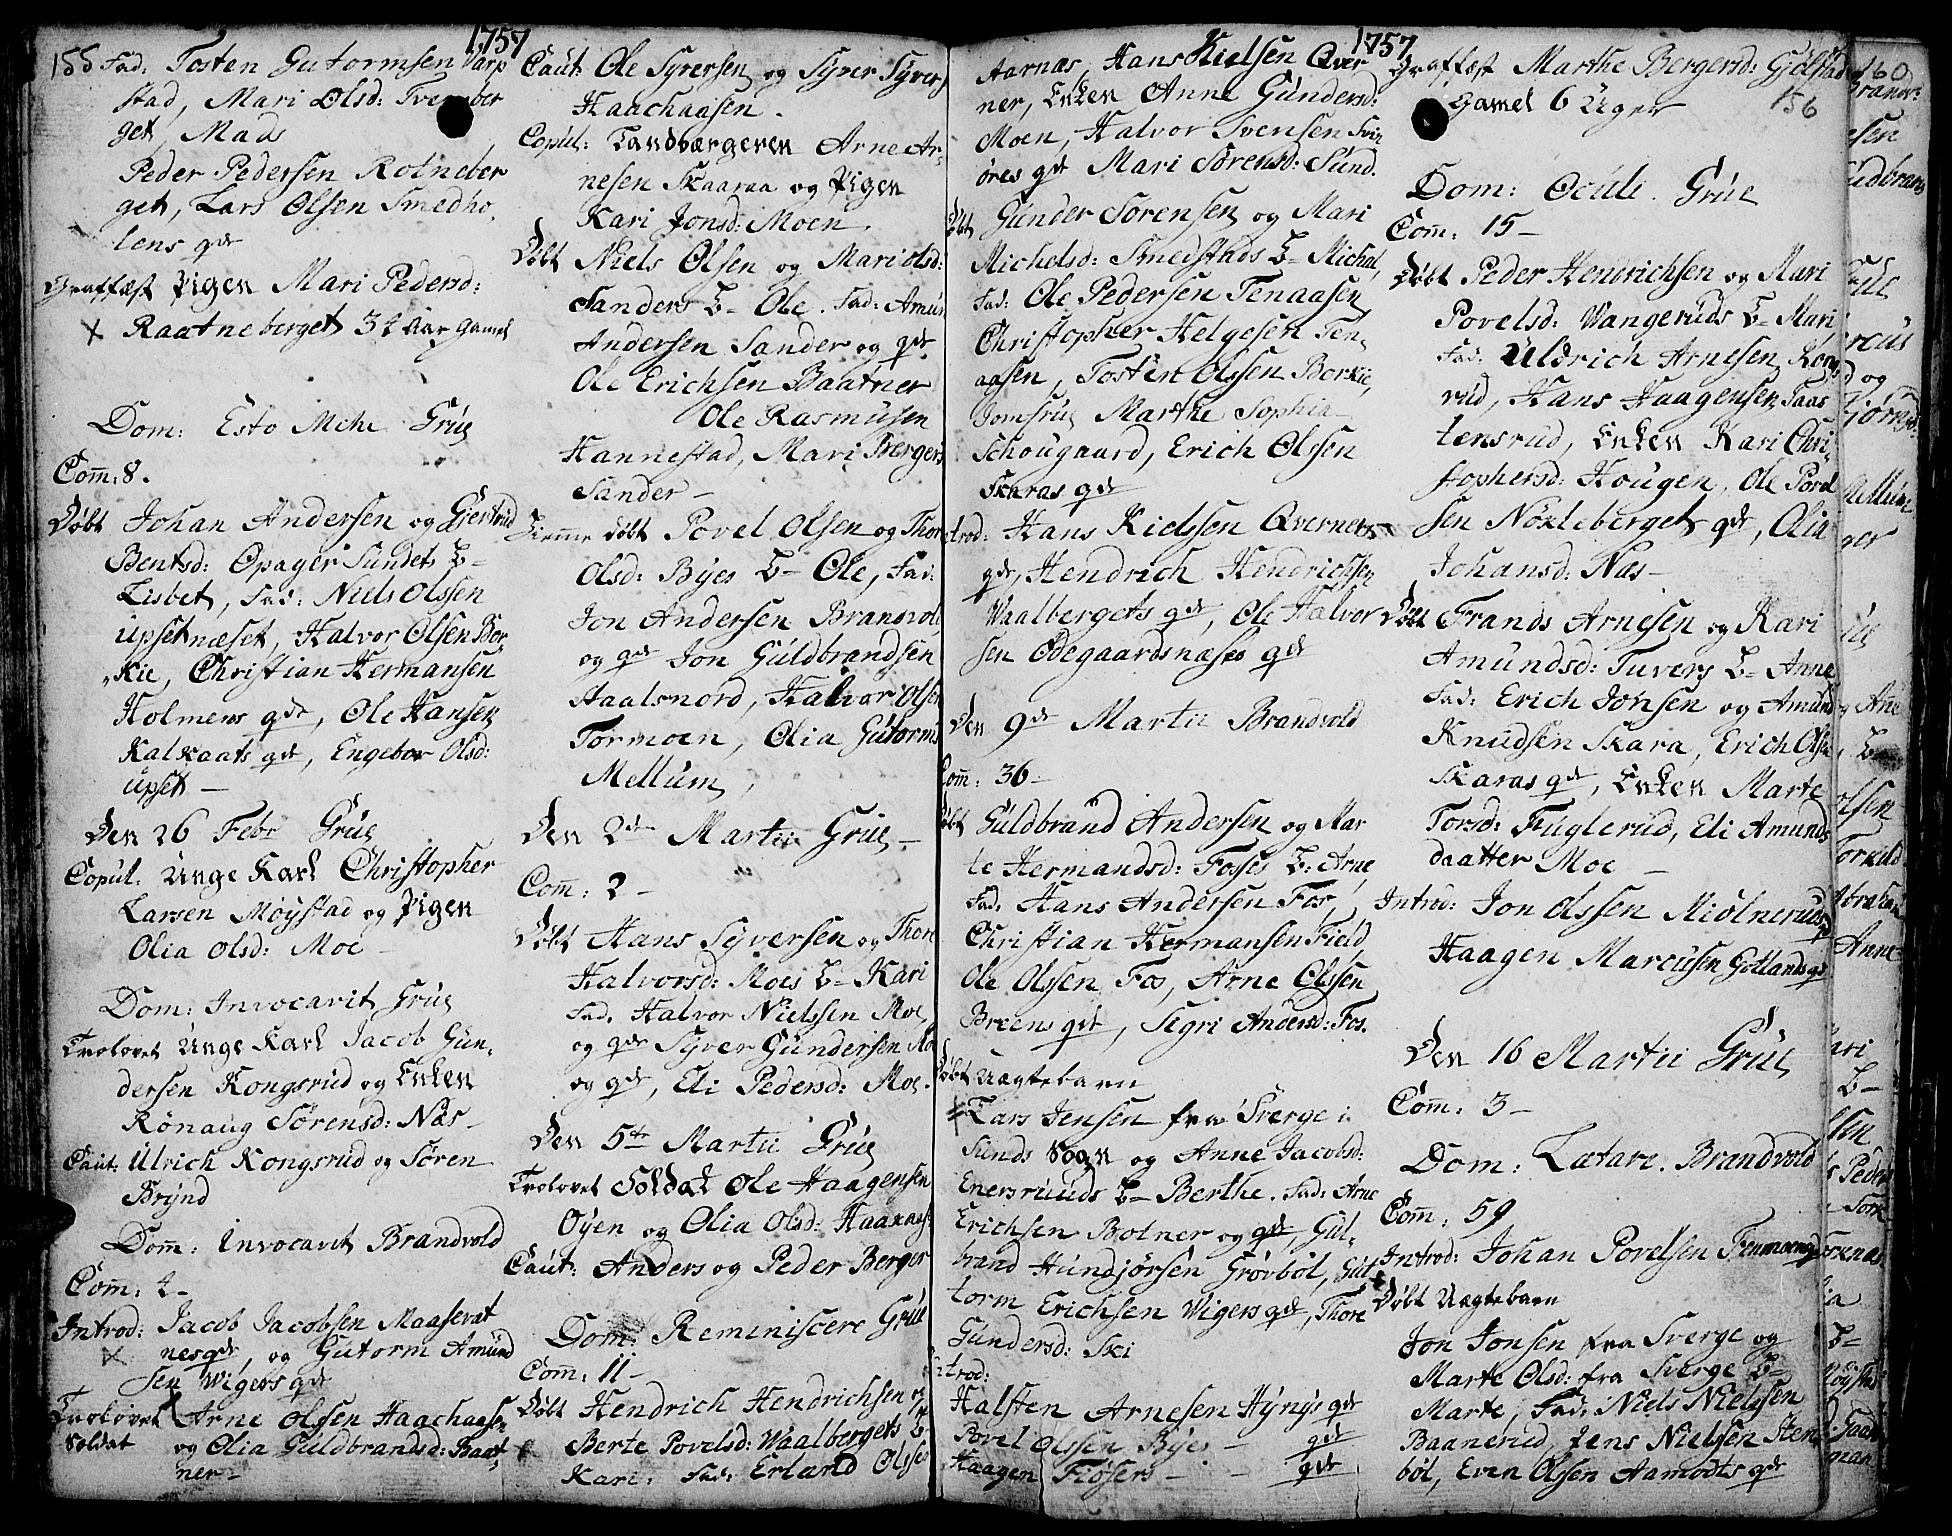 1757
155 Fad: Tosten Gutormsen Varp
stad, Mari Olsd: Tvengber
get, Mads
Peder Pedersen Rotneber
get, Lars Olsen Smedho
lens qde
Graffæst Pigen Mari Pedersd:
Raatneberget 32 Aar gamel
Dom: Esto Mihi Grue
Com: 8.
Døbt Johan Andersen og Giertrud
Bentsd: Opager Sundets B-
Lisbet, Fad: Niels Olssen
upsetnæset, Halvor Olsen Bor
kie, Christian Hermansen
Holmens qde, Ole Hansen
Kalkaats qde, Engebor Olsd:
upset -
Den 26 Febr Grue
Copul: Unge Karl Christopher
Larsen Møystad og Pigen
Olia Olsd: Moe -
Dom: Invocavit Grue
Trolovet Unge Karl Jacob Gun,
dersen Kongsrud og Enken
Rönaug Sørensd: Nas -
Caut: Ulrich Kongsrud og Søren
Brynd
Dom: Invocavit Brandvold
Com: 4 -
Introd: Jacob Jacobsen Maaserat
nes qde, og Gutorm Amund
sen Wigers qde
Trolovet Arne Olsen Haachaase
Soldat og Olia Guldbrandsd: Baat
ner -
Caut: Ole Syversen og Syver Syvers
Haachaasen.
Copul: Landværgeren Arne Ar
nesen Skaaraa og Pigen
Kari Jonsd: Moen.
Døbt Niels Olsen og Mari Olsd:
Sanders B- Ole. Fad: Amun
Andersen Sander og qde
Ole Erichsen Baatner
Ole Rasmusen
Hannestad, Mari Bergers
Sander -
Hiemme døbt Povel Olsen og Thor
Olsd: Byes B- Ole, Fad:
Jon Andersen Branvol
og qde Jon Guldbrandsen
Haalsnord, Halvor Olsen
Tormoen, Olia Gutorms
Mellum,
Den 2de Martii Grue -
Com: 2 -
Døbt Hans Syversen og Thore
Halvorsd: Moes B- Kari
Fad. Halvor Nielssen Moe,
og qde Syver Gundersen Mo
og qde, Eli Pedersd: Moe.
Den 5te Martii Grue
Trolovet Soldat Ole Haagensen
Oyen og Olia Olsd: Haaxaas
Caut: Anders og Peder Berger
Dom: Reminiscere Grue
Com: 11 -
Døbt Hendrich Hendrichsen og
Berte Povelsd: Waalbergets B-
Kari. Fad: Erland Olsse
1757
Aarnæs, Hans Kielsen Qver
ner, Enken Anne Gundersd:
Moen, Halvor Svensen Svin
öres qde Mari Sørensd: Sund.
Døbt Gunder Sorensen og Mari
Michelsd: Smedstads B- Michel,
Fad: Ole Pedersen Tenaasen
Christopher Helgesen Ten,
aasen, Tosten Olssen Borkie,
Jomfrue Marthe Sophia
Schougaard, Erich Olssen
Skaras qde
Introd: Hans Kielssen Qverners
qde, Hendrich Hendrichsen
Waalbergets qde, Ole Halvor
sen Ödegaardsnæses qde
Den 9de Martii Brandvold
Com: 36 -
Døbt Guldbrand Andersen og Mar
te Hermandsd: Foses B: Arne,
Fad: Hans Andersen Fos,
Christian Hermansen Field
Ole Olssen Fos, Arne Olssen
Breens qde, Sigri Andersd: Fos.
Døbt Uægtebarn
Lars Jensen fra Sverge i
Sunds Sogn og Anne Jacobsd:
Enersruuds B- Berthe. Fad: Arne
Erichsen Botner og qde, Gul-
brand Hundjörsen Grövböl, Gut
torm Erichsen Wigers qde, Thore
Gundersd: Ski
Introd:
Halsten Arnesen Hynys qde
Povel Olssen Byes - qde
Haagen Fiösers - - qde
Graffæst Marthe Bergersd: Gjølstad
156
Gamel 6 Uger
Dom: Oculi. Grue
Com: 15 -
Døbt Peder Hendrichsen og Mari
Povelsd: Wangeruds B- Mari
Fad: Uldrich Arnesen Kongs
rud, Hans Haagensen Taas
tensrud, Enken Kari Chri-
stophersd: Hougen, Ole Povel
sen Nøkleberget qde, Olia
Johansd: Nas -
Døbt Frands Arnesen og Kari
Amundsd: Tuvers B- Anne
Fad: Erich Jonsen og Amund
Knudsen Skara, Erich Olsen
Skaras qde, Enken Marte
Torsd: Fuglerud, Eli Amunds
daatter Moe -
Introd: Jon Olssen Miölneruds qde
Haagen Marcusen Gotlands qde
Den 16 Martii Grue
Com: 3 -
Dom: Lætare. Brandvold
Com: 59
Introd: Johan Povelsen Tenmoens qde
Døbt Uægtebarn
Jon Jonsen fra Sverge og
Marte Olsd: fra Sverge B-
Marte, Fad: Niels Nielssen
Baanerud, Jens Nielsen Hem
böl, Even Olssen Aamodts qde